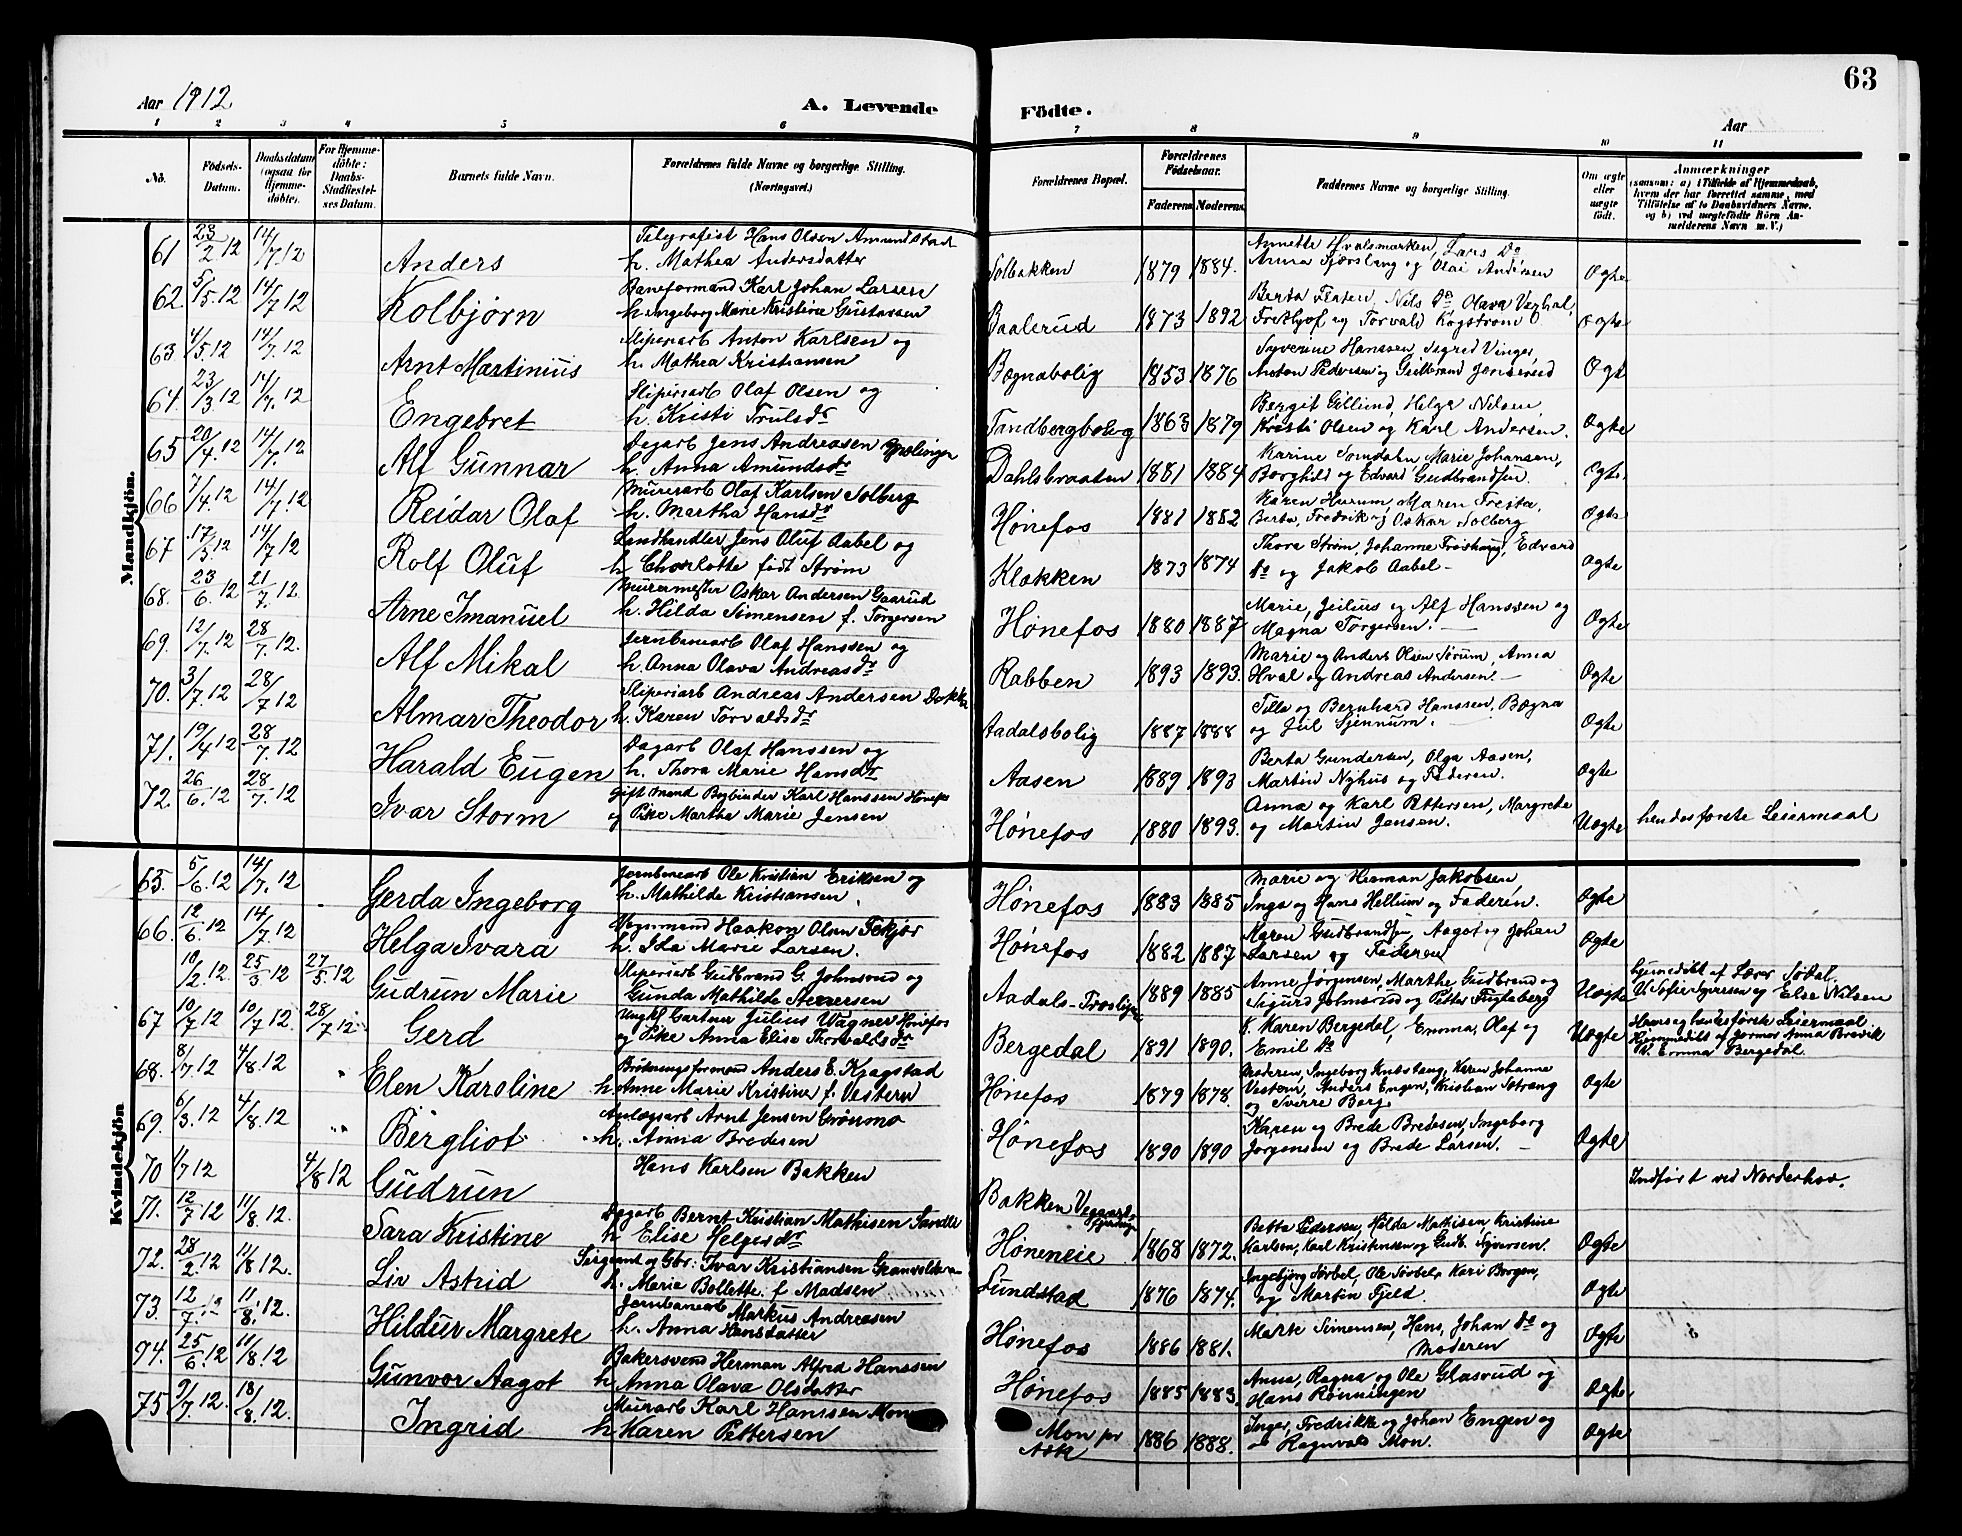 63
Aar 1912
A. Levende Födte.
Aar
1 2 3 4 5 6 7 8 9 10 11
No.
Födsels-Datum.
Daabsdatum (ogsaa for Hjemme-döbte).
For Hjemme-döbte: Daabs-Stadfæstel-ses Datum.
Barnets fulde Navn.
Forældrenes fulde Navne og borgerlige Stilling. (Næringsvei.)
Forældrenes Bopæl.
Forældrenes Födselsaar.
Faderens Moderens
Faddernes Navne og borgerlige Stilling.
Om ægte eller uægte födt.
Anmærkninger
(saasom: a) i Tilfælde af Hjemmedaab,
hvem der har forrettet samme, med
Tilföielse af to Daabsvidners Navne.
og b) ved uægtefödte Börn An-
melderens Navn m. V.)
Mandkjön.
61 23/2 12 14/7.12 Anders Telegrafist Hans Olsen Amundstad
h. Mathea Andersdatter Solbakken 1879 1884. Annette Hvalsmarken, Lars do
Anna og Olai Andersen Ogte
62 5/5.12 14/7 12 Kolbjørn Baneformand Karl Johan Larsen
h. Ingeborg Marie Kristine Gustassen Baalerud 1873 1892 Berta Flaten, Nils do Olava
Frethjof og Torvald Ogte
63 4/5.12 14/7.12 Arnt Martinius Sliperiarb Anton Karlsen og
h. Mathea Kristiansen Bægnabolig 1853 1876 Syverine Hanssen, Sigred Vinger,
Anton Pedersen og Gulbrand Ogt
64. 23/3.12 14/7.12 Engebret Sliperiarb Olaf Olsen og
h. Kristi Trulsdr Tandbergbolig 1863 1879 Bergit Gillund, Helga Nilsen,
Kristi Olsen og Karl Andersen. Ogte
65 20/4.12 14/7.12 Alf Gunnar Dagarb Jens Andreasen
h. Anna Amundsdr Dahlsbraaten 1881 1884 Karine Sørndalen Marie Johansen,
Borghild og Edvard Gudbrandsen. Ogte.
66 7/4.12 14/7.12 Reidar Olaf Murerarb Olaf Karlsen Solberg
h. Martha Hansdr Hønefos 1881 1882 Karen Hurum, Maren
Berta, Fredrik og Oskar Solberg Ogte
67 17/5 12 14/7 12 Rolf Oluf Landhandler Jens Oluf Aabel og
h Charlotte født Strøm Klækken 1873 1874 Thora Strøm, Johanne Frøshaug, Edvard
do og Jakob Aabel - Ogte
68. 23/6.12 21/7.12. Arne Imanuel Murermester Oskar Andersen Gaarud
h. Hilda Simensen f. Torgersen Hønefos 1880 1887 Marie, Julius og Alf Hanssen og
Magna Torgersen. Ogte
69. 12/7.12 28/7.12. Alf Mikal Jernbanearb Olaf Hanssen og
h. Anna Olava Andreasdr Rabben 1893 1893. Marie og Anders Olsen Sørum, Anna
Hval og Andreas Andersen. - Ogte
70. 3/7.12 28/7 12 Almar Theodor Sliperiarb Andreas Andersen Dokka
h. Karen Torvaldsdr Aadalsbolig 1887 1888 Tilla og Bernhard Hanssen, Bægna
og Juel Sjennum. Ogte
71. 19/4 12 28/7.12 Harald Eugen Dagarb Olaf Hanssen og
h. Thora Marie Hansdr Aasen 1889 1893 Berta Gundersen, Olga Aasen,
Martin Nyhus og Faderen. Ogte
72. 26/6.12 28/7.12 Ivar Storm Gift mand Bogbinder Karl Hanssen Hønefos
og Pike Martha Marie Jensen Hønefos 1880 1893. Anna og Karl Pettersen, Margrete
og Martin Jensen. Uogte hendes første Leiermaal
Kvindekjön
65. 5/6.12 14/7.12 Gerda Ingeborg Jernbanearb Ole Kristian Eriksen og
h. Mathilde Kristiansen. Hønefos 1883 1885 Marie og Herman Jakobsen,
Inga og Hans Hellum og Faderen. Ogte
66. 12/6.12 14/7.12 Helga Ivara Vognmand Haakon Olsen Fekjær
h. Ida Marie Larsen. Hønefos 1882 1887 Karen Gudbrandsen, Aagot og Johan
Larsen og Faderen Ogte
10/2.12. 25/3 12 27/5.12 Gudrun Marie Sliperiarb Gudbrand G. Johnsrud og
Gunda Mathilde Aadals- 1889 1885 Anne Jørgensen, Marthe Gudbrand og
Sigurd Johnsrud og Petter Fuglberg Uogte hjemmedøbt af Lærer Sødal,
V. Sofie og Else Nilsen
67 10/7 12 10/7 12. 28/7 12 Gerd Ungkl Gartner Julius Wagner Hønefos
og Pike Anna Elise Thorvaldsdr Bergedal 1891 1890. f. Karen Bergedal, Emma, Olaf og
Emil do Uogte Hans og hendes første Leiermaal
Hjemmedøbt af jormor Anna Brevik
V. Emma Bergedal.
68. 8/7.12 4/8.12 Elen Karoline Brolægningsformand Anders E. Kragstad
h. Anne Marie Kristine f. Vestern Hønefos 1879 1878. Moderen, Ingeborg Knestang, Karen Johanne
Vestern, Anders Engen, Kristian Strang
og Sverre Berg. Ogte
69. 6/3.12 4/8.12 Bergliot Anlægsarb Arnt Jensen Grønmo
h. Anna Bredesen Hønefos 1890 1890 Karen og Brede Bredesen, Ingeborg
Jørgensen og Brede Larsen. - Ogte
70 1/7 12 4/8 12 Gudrun Hans Karlsen Bakken Bakken Indført ved Norderhov.
71. 12/7 12 11/8.12. Sara Kristine Dagarb Bernt Kristian Mathisen Sandli
h Elise Helgesdr Høneneie 1868 1872. Betta Pedersen, Hilda Mathisen, Kristine
Karlsen, Karl Kristensen og Gudb. Syversen. Ogte
72. 28/2.12 11/8 12. Liv Astrid Sergeant og Gbr. Ivar Kristiansen
h. Maria Bollette f Madsen Lundstad 1876 1874. Ingebjørg Sørbel, Ole Sørbel, Kari Borgen,
og Martin Fjeld. Ogte
73. 12/7.12 11/8.12. Hildur Margrete Jernbanearb Markus Andreasen
h. Anna Hansdatter Hønefos 1886 1881. Marte Simensen, Hans, Johan do og
Moderen Ogte
74. 25/6.12 11/8.12 Gunvor Aagot Bakersvend Herman Alfred Hanssen
h. Anna Olava Olsdatter Hønefos 1885 1883. Anna, Ragna og Ole Glasrud og
Hans Rønningen Ogte
75 9/7.12. 18/8.12. Ingrid Murarb Karl Hanssen Mon
h Karen Pettersen Mon pr
Ask 1886 1888. Inga, Fredrikke og Johan Engen og
Ragnvald Mon. Ogte